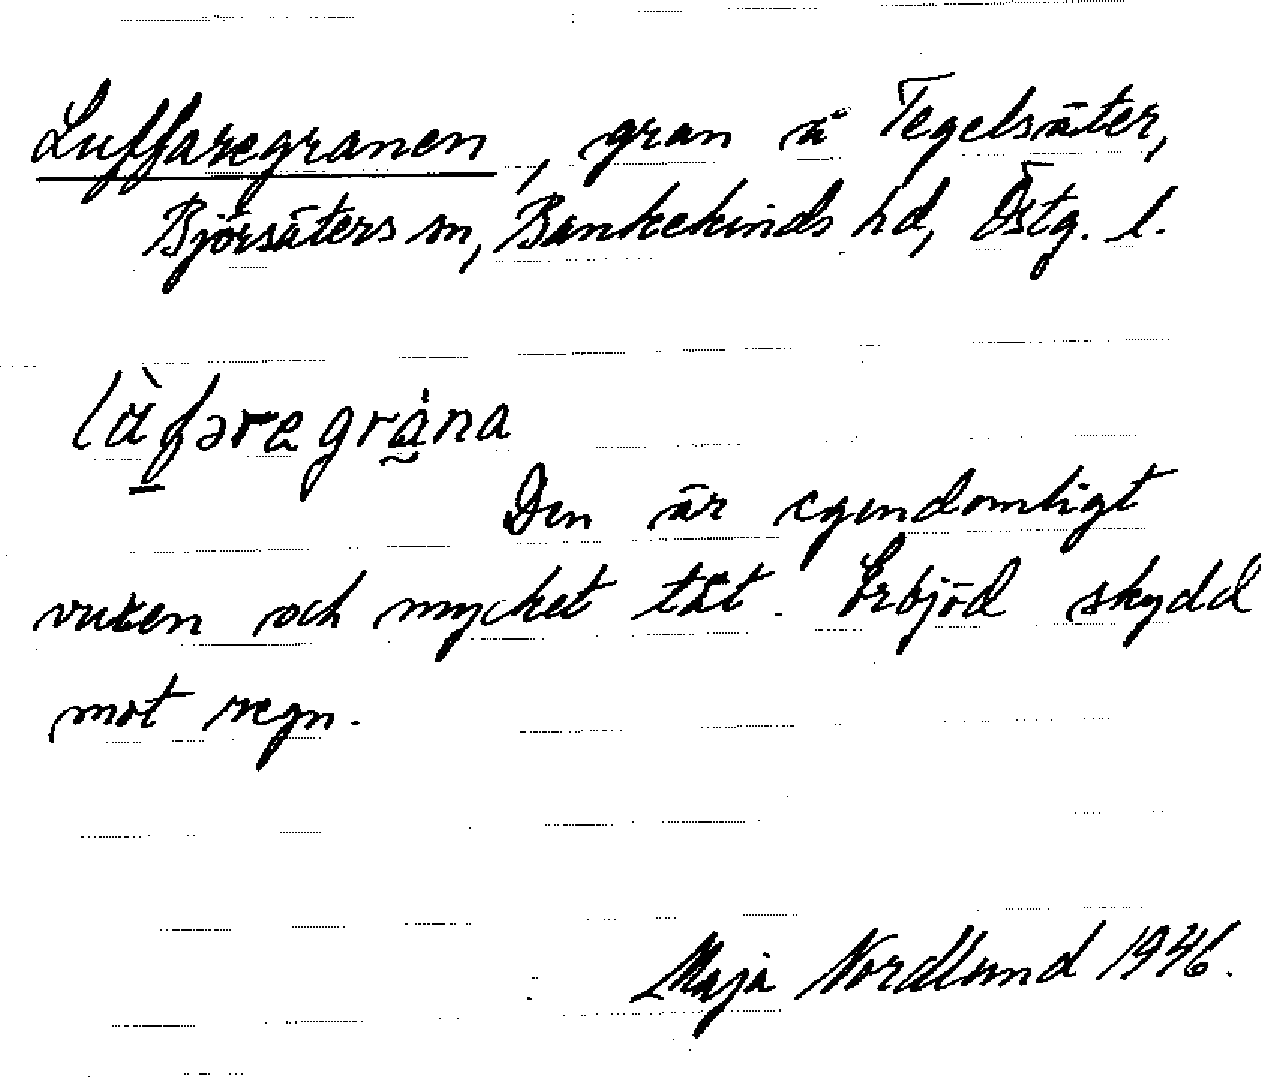 Luffaregranen, gran å Tegelsäter,
Björsäters sn, Bankekinds hd, Östg. l.
Den är egendomligt
vuxen och mycket tät. Erbjöd skydd
mot regn.
Maja Nordlund 1946.